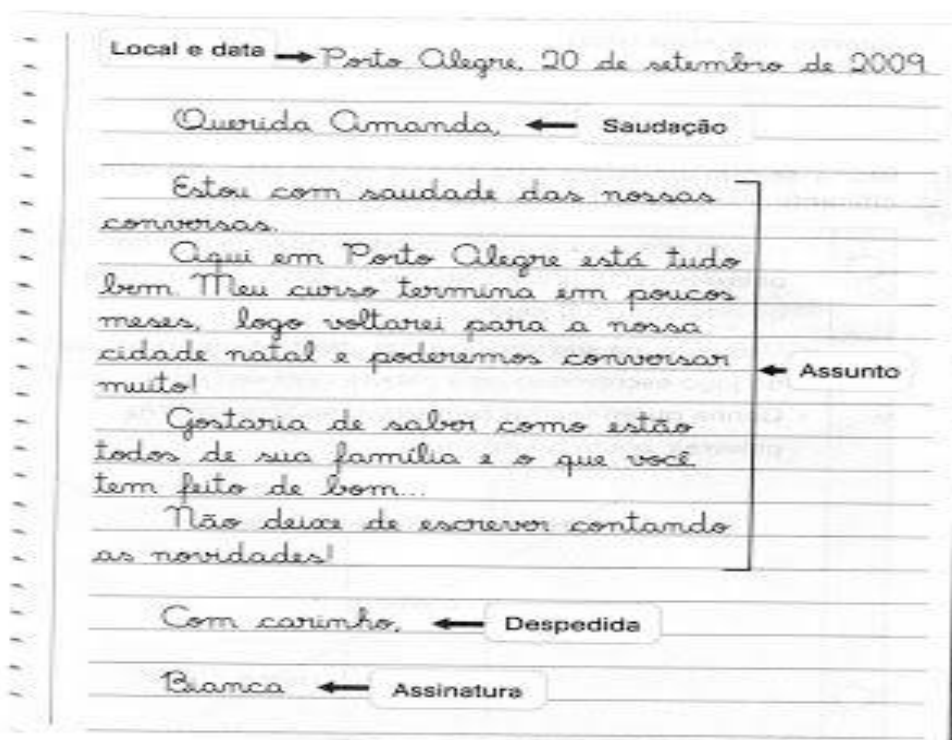 Local e data → Porto Alegre, 20 de setembro de 2009
Querida Amanda, ← Saudação
Estou com saudade das nossas
conversas.
Aqui em Porto Alegre está tudo
bem. Meu curso termina em poucos
meses, logo voltarei para a nossa
cidade natal e poderemos conversar
muito!
← Assunto
Gostaria de saber como estão
todos de sua família e o que você
tem feito de bom...
Não deixe de escrever contando
as novidades!
Com carinho, ← Despedida
Bianca ← Assinatura